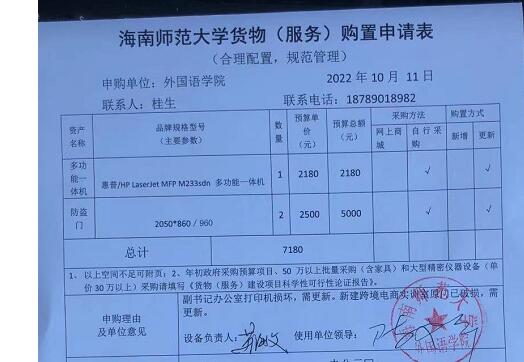 海南师范大学货物（服务）购置申请表
（合理配置，规范管理）
申购单位：外国语学院
2022 年 10 月 11 日
联系人：桂生
联系电话：18789018982
资产名称 品牌规格型号（主要参数） 数量 预算单价（元） 预算总额（元） 采购方法 购置方式
网上商城 自行采购 新增 更新
多功能一体机 惠普/HP LaserJet MFP M233sdn 多功能一体机 1 2180 2180 √ √
防盗门 2050*860 / 960 2 2500 5000 √ √
总计 7180
1、以上空间不足可附页；2、年初政府采购预算项目、50 万以上批量采购（含家具）和大型精密仪器设备（单
价 30 万以上）采购请填写《货物（服务）建设项目科学性可行性论证报告》。
申购理由及单位意见
副书记办公室打印机损坏，需更新。新建跨境电商实训室原门已破损，需
更新。
设备负责人：
使用单位领导：
外国语学院